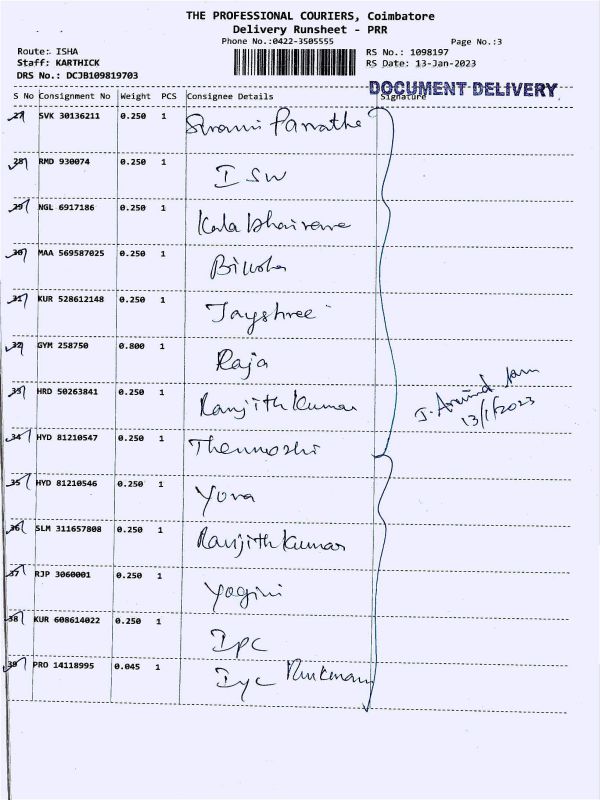 THE PROFESSIONAL COURIERS, Coimbatore
Delivery Runsheet - PRR
Phone No.:0422-3505555
Page No.:3
Route: ISHA
RS No.: 1098197
Staff: KARTHICK
RS Date: 13-Jan-2023
DRS No.: DCJB109819703
DOCUMENT DELIVERY
S No Consignment No Weight PCS Consignee Details Signature
27 SVK 30136211 0.250 1 Swami
28 RMD 930074 0.250 1 ISW
29 NGL 6917186 0.250 1 Kala bhairava
30 MAA 569587025 0.250 1
31 KUR 528612148 0.250 1 Jayshree
32 GYM 258750 0.800 1 Raja
33 HRD 50263841 0.250 1 Ranjith Kumar
J. Aravind
13/1/2023
34 HYD 81210547 0.250 1 Thennozhi
35 HYD 81210546 0.250 1 Yova
36 SLM 311657808 0.250 1 Ranjith Kumar
37 RJP 3060001 0.250 1 Yogini
38 KUR 608614022 0.250 1 IPC
39 PRO 14118995 0.045 1 Iyc